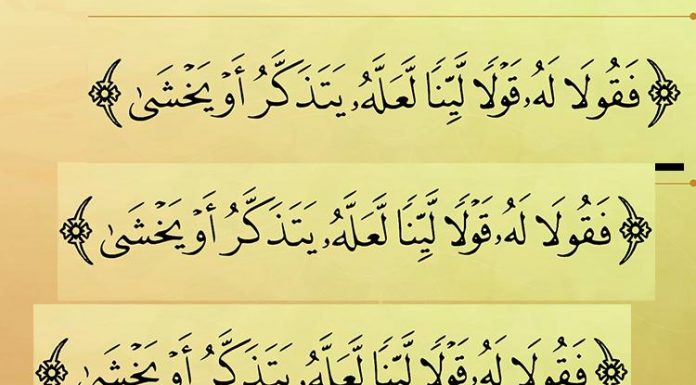 ﴿فَقُولَا لَهُۥ قَوۡلٗا لَّيِّنٗا لَّعَلَّهُۥ يَتَذَكَّرُ أَوۡ يَخۡشَىٰ﴾
﴿فَقُولَا لَهُۥ قَوۡلٗا لَّيِّنٗا لَّعَلَّهُۥ يَتَذَكَّرُ أَوۡ يَخۡشَىٰ﴾
﴿فَقُولَا لَهُۥ قَوۡلٗا لَّيِّنٗا لَّعَلَّهُۥ يَتَذَكَّرُ أَوۡ يَخۡشَىٰ﴾